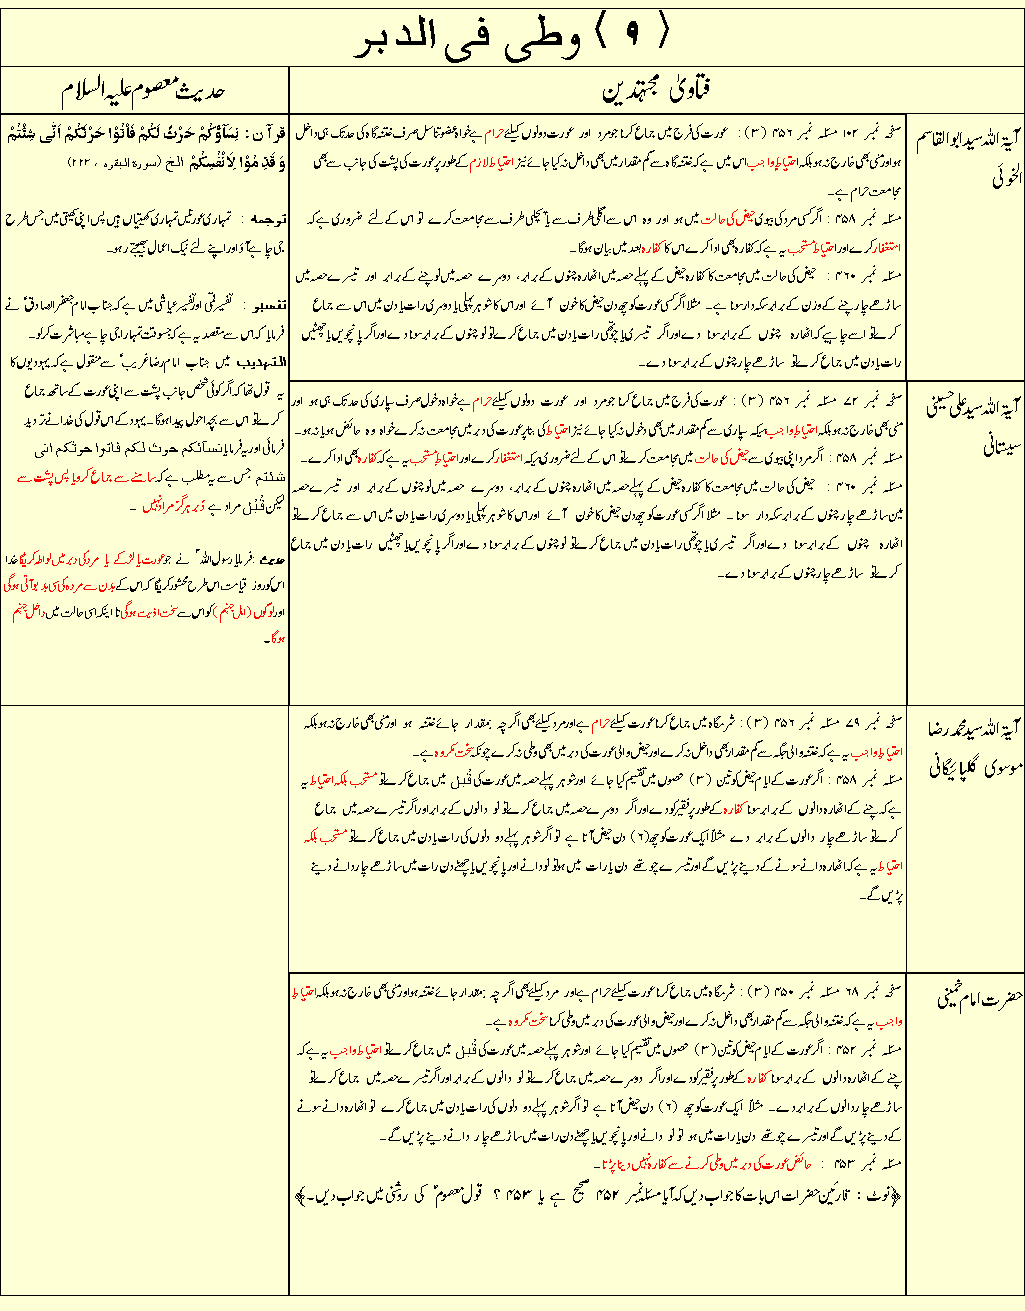 ﴿ ۹ ﴾ وطی فی الدبر
فتاویٰ مجتہدین
حدیث معصوم علیہ السلام
آیۃ اللہ سید ابوالقاسم
الخوئی
صفحہ نمبر ۱۰۲ مسئلہ نمبر ۴۵۶ (۳) : عورت کی فرج میں جماع کرنا جو مرد اور عورت دونوں کیلئے حرام ہے خواہ عضو تناسل صرف ختنہ گاہ کی حد تک ہی داخل
ہو اور منی بھی خارج نہ ہو بلکہ احتیاط واجب اس میں ہے کہ ختنہ گاہ سے کم مقدار میں بھی داخل نہ کیا جائے نیز احتیاط لازم کے طور پر عورت کی پشت کی جانب سے بھی
مجامعت حرام ہے۔
مسئلہ نمبر ۴۵۸ : اگر کسی مرد کی بیوی حیض کی حالت میں ہو اور وہ اس سے اگلی طرف سے یا پچھلی طرف سے مجامعت کرے تو اس کے لئے ضروری ہے کہ
استغفار کرے اور احتیاط مستحب یہ ہے کہ کفارہ بھی ادا کرے اس کا کفارہ بعد میں بیان ہوگا۔
مسئلہ نمبر ۴۶۰ : حیض کی حالت میں مجامعت کا کفارہ حیض کے پہلے حصہ میں اٹھارہ چنوں کے برابر، دوسرے حصہ میں نو چنے کے برابر اور تیسرے حصہ میں
ساڑھے چار چنے کے وزن کے برابر سکہ دار سونا ہے۔ مثلا اگر کسی عورت کو چھ دن حیض کا خون آئے اور اس کا شوہر پہلی یا دوسری رات یا دن میں اس سے جماع
کرے تو اسے چاہیے کہ اٹھارہ چنوں کے برابر سونا دے اور اگر تیسری یا چوتھی رات یا دن میں جماع کرے تو نو چنوں کے برابر سونا دے اور اگر پانچویں یا چھٹیں
رات یا دن میں جماع کرے تو ساڑھے چار چنوں کے برابر سونا دے۔
آیۃ اللہ سید علی حسینی
سیستانی
صفحہ نمبر ۷۲ مسئلہ نمبر ۴۵۶ (۳) : عورت کی فرج میں جماع کرنا جو مرد اور عورت دونوں کیلئے حرام ہے خواہ دخول صرف سپاری کی حد تک ہی ہو اور
منی بھی خارج نہ ہو بلکہ احتیاط واجب ہیکہ سپاری سے کم مقدار میں بھی دخول نہ کیا جائے نیز احتیاط کی بنا پر عورت کی دبر میں مجامعت نہ کرے خواہ وہ حائض ہو یا نہ ہو۔
مسئلہ نمبر ۴۵۸ : اگر مرد اپنی بیوی سے حیض کی حالت میں مجامعت کرے تو اس کے لئے ضروری ہیکہ استغفار کرے اور احتیاط مستحب یہ ہے کہ کفارہ بھی ادا کرے۔
مسئلہ نمبر ۴۶۰ : حیض کی حالت میں مجامعت کا کفارہ حیض کے پہلے حصہ میں اٹھارہ چنوں کے برابر، دوسرے حصہ میں نو چنوں کے برابر اور تیسرے حصہ
میں ساڑھے چار چنوں کے برابر سکہ دار سونا۔ مثلا اگر کسی عورت کو چھ دن حیض کا خون آئے اور اس کا شوہر پہلی یا دوسری رات یا دن میں اس سے جماع کرے تو
اٹھارہ چنوں کے برابر سونا دے اور اگر تیسری یا چوتھی رات یا دن میں جماع کرے تو نو چنوں کے برابر سونا دے اور اگر پانچویں یا چھٹیں رات یا دن میں جماع
کرے تو ساڑھے چار چنوں کے برابر سونا دے۔
آیۃ اللہ سید محمد رضا
موسوی گلپائیگانی
صفحہ نمبر ۷۹ مسئلہ نمبر ۴۵۶ (۳) : شرمگاہ میں جماع کرنا عورت کیلئے حرام ہے اور مرد کیلئے بھی اگر چہ بمقدار جائے ختنہ ہو اور منی بھی خارج نہ ہو بلکہ
احتیاط واجب یہ ہے کہ ختنہ والی جگہ سے کم مقدار بھی داخل نہ کرے اور حیض والی عورت کی دبر میں بھی وطی نہ کرے چونکہ سخت مکروہ ہے۔
مسئلہ نمبر ۴۵۸ : اگر عورت کے ایام حیض کو تین (۳) حصوں میں تقسیم کیا جائے اور شوہر پہلے حصہ میں عورت کی قُبل میں جماع کرے تو مستحب بلکہ احتیاط یہ
ہے کہ چنے کے اٹھارہ دانوں کے برابر سونا کفارہ کے طور پر فقیر کو دے اور اگر دوسرے حصہ میں جماع کرے تو نو دانوں کے برابر اور اگر تیسرے حصہ میں جماع
کرے تو ساڑھے چار دانوں کے برابر دے مثلاً ایک عورت کو چھ (۶) دن حیض آتا ہے تو اگر شوہر پہلے دو دنوں کی رات یا دن میں جماع کرے تو مستحب بلکہ
احتیاط یہ ہے کہ اٹھارہ دانے سونے کے دینے پڑیں گے اور تیسرے چوتھے دن یا رات میں ہو تو نو دانے اور پانچویں یا چھٹے دن رات میں ساڑھے چار دانے دینے
پڑیں گے۔
حضرت امام خمینی
صفحہ نمبر ۶۸ مسئلہ نمبر ۴۵۰ (۳) : شرمگاہ میں جماع کرنا عورت کیلئے حرام ہے اور مرد کیلئے بھی اگر چہ بمقدار جائے ختنہ ہو اور منی بھی خارج نہ ہو بلکہ احتیاط
واجب یہ ہے کہ ختنہ والی جگہ سے کم مقدار بھی داخل نہ کرے اور حیض والی عورت کی دبر میں وطی کرنا سخت مکروہ ہے۔
مسئلہ نمبر ۴۵۲ : اگر عورت کے ایام حیض کو تین (۳) حصوں میں تقسیم کیا جائے اور شوہر پہلے حصہ میں عورت کی قُبل میں جماع کرے تو احتیاط واجب یہ ہے کہ
چنے کے اٹھارہ دانوں کے برابر سونا کفارہ کے طور پر فقیر کو دے اور اگر دوسرے حصہ میں جماع کرے تو نو دانوں کے برابر اور اگر تیسرے حصہ میں جماع کرے تو
ساڑھے چار دانوں کے برابر دے۔ مثلاً ایک عورت کو چھ (۶) دن حیض آتا ہے تو اگر شوہر پہلے دو دنوں کی رات یا دن میں جماع کرے تو اٹھارہ دانے سونے
کے دینے پڑیں گے اور تیسرے چوتھے دن یا رات میں ہو تو نو دانے اور پانچویں یا چھٹے دن رات میں ساڑھے چار دانے دینے پڑیں گے۔
مسئلہ نمبر ۴۵۳ : حائض عورت کی دبر میں وطی کرنے سے کفارہ نہیں دینا پڑتا۔
﴿نوٹ : قارئین حضرات اس بات کا جواب دیں کہ آیا مسئلہ نمبر ۴۵۲ صحیح ہے یا ۴۵۳ ؟ قول معصومؑ کی روشنی میں جواب دیں۔﴾
قرآن : نِسَآؤُكُمْ حَرْثٌ لَّكُمْ فَاْتُوْا حَرْثَكُمْ اَنّٰى شِئْتُمْ
وَ قَدِّمُوْا لِاَنْفُسِكُمْ الخ (سورۃ البقرہ ، ۲۲۳)
ترجمہ : تمہاری عورتیں تمہاری کھیتیاں ہیں پس اپنی کھیتی میں جس طرح
جی چاہے آؤ اور اپنے لئے نیک اعمال بھیجتے رہو۔
تفسیر : تفسیر قمی اور تفسیر عیاشی میں ہے کہ جناب امام جعفر الصادقؑ نے
فرمایا کہ اس سے مقصد یہ ہے کہ جسوقت تمہارا جی چاہے مباشرت کر لو۔
التہذیب میں جناب امام رضا غریبؑ سے منقول ہے کہ یہودیوں کا
یہ قول تھا کہ اگر کوئی شخص جانب پشت سے اپنی عورت کے ساتھ جماع
کرے تو اس سے بچہ احول پیدا ہوگا۔ یہود کے اس قول کی خدا نے تردید
فرمائی اور یہ فرمایا نسآئکم حرث لکم فاتوا حرثکم انی
شئتم جس سے یہ مطلب ہے کہ سامنے سے جماع کرو یا پس پشت سے
لیکن قُبل مراد ہے دُبر ہرگز مراد نہیں ۔
حدیث : فرمایا رسول اللہؐ نے جو عورت یا لڑکے یا مرد کی دبر میں لواطہ کریگا خدا
اس کو روز قیامت اس طرح محشور کریگا کہ اس کے بدن سے مردہ کی سی بدبو آتی ہوگی
اور لوگوں (اہل جہنم) کو اس سے سخت اذیت ہوگی تا اینکہ اسی حالت میں داخل جہنم
ہوگا۔